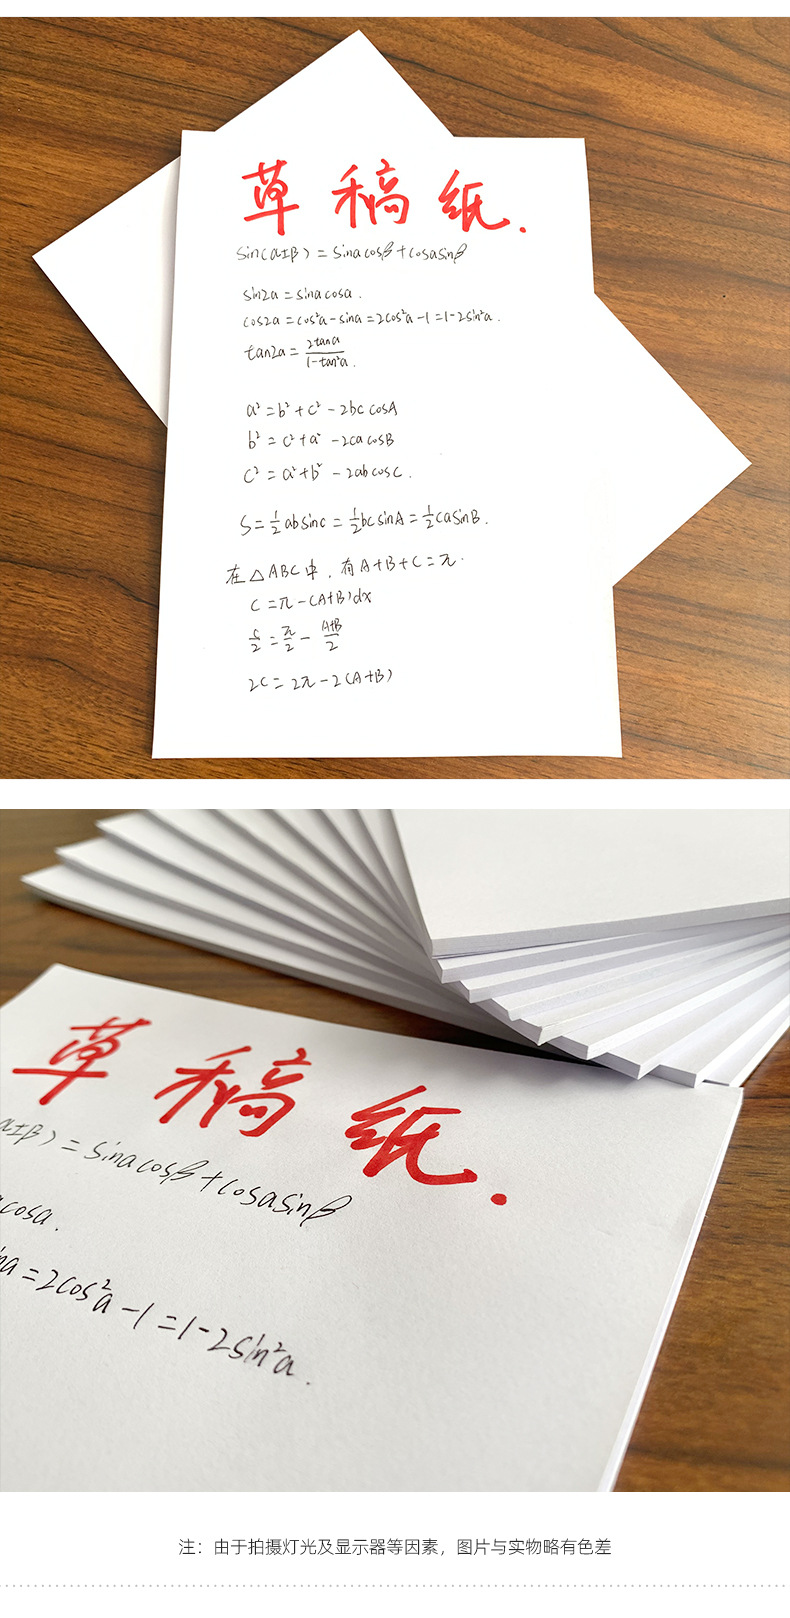 草稿纸.
sin(α±β) = sinacosβ+cosasinβ
sin2a = sinacosa.
cos2a = cos²a-sina=2cos²a-1=1-2sin²a.
tan2a = 2tana/1-tan²a.
a² = b² + c² - 2bc cosA
b² = c² + a² - 2ca cosB
c² = a² + b² - 2ab cosC.
S = 1/2 absinc = 1/2 bcsinA = 1/2 casinB.
在△ABC中, 有A+B+C=π.
C = π-(A+B)dx
c/2 = π/2 - A+B/2
2C = 2π-2(A+B)
草稿纸.
α±β) = sinacosβ+cosasinβ
cosa.
na = 2cos²a-1=1-2sin²a.
注：由于拍摄灯光及显示器等因素，图片与实物略有色差